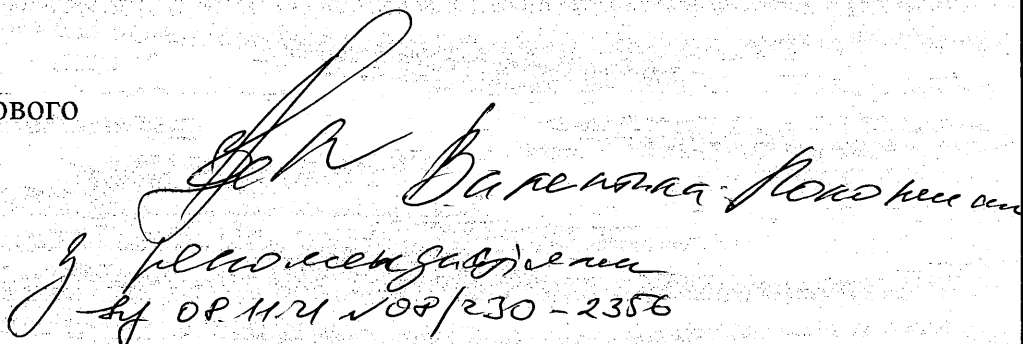 ового
Валентина
з рекомендаціями
від 08.11.21 №08/230-2356